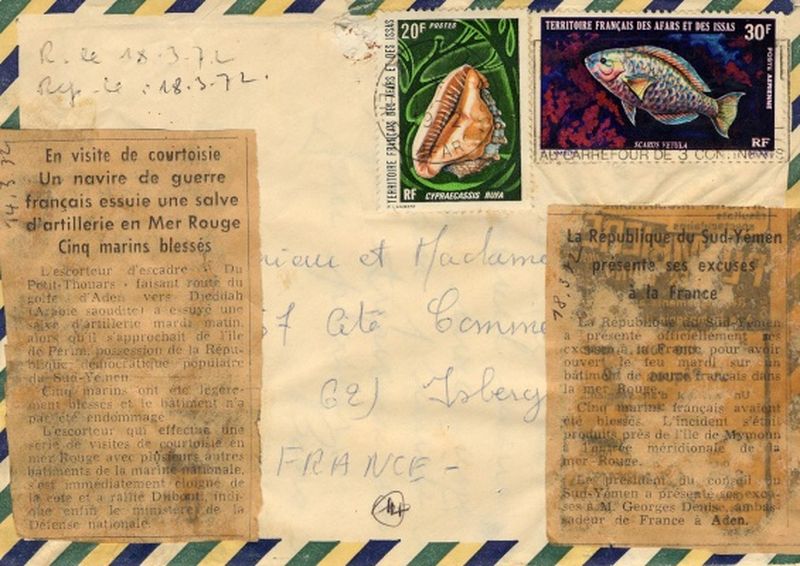 R. le 18.3.72
Rep. le 18.3.72.
20F POSTES
TERRITOIRE FRANÇAIS DES AFARS ET DES ISSAS
RF CYPRAECASSIS RUFA
TERRITOIRE FRANÇAIS DES AFARS ET DES ISSAS
30F
POSTE AERIENNE
SCARUS VETULA
RF
AU CARREFOUR DE 3 CONTINENTS
14.3.72
En visite de courtoisie
Un navire de guerre
français essuie une salve
d'artillerie en Mer Rouge
Cinq marins blessés
L'escorteur d'escadre « Du
Petit-Thouars » faisant route du
golfe d'Aden vers Djeddah
(Arabie saoudite) a essuyé une
salve d'artillerie mardi matin,
alors qu'il s'approchait de l'île
de Périm, possession de la Répu-
blique démocratique populaire
du Sud-Yémen.
Cinq marins ont été légère-
ment blessés et le bâtiment n'a
pas été endommagé.
L'escorteur qui effectue une
série de visites de courtoisie en
mer Rouge avec plusieurs autres
bâtiments de la marine nationale,
s'est immédiatement éloigné de
la côte et a rallié Djibouti, indi-
que enfin le ministère de la
Défense nationale.
18.3.72
La République du Sud-Yémen
présente ses excuses
à la France
La République du Sud-Yémen
a présenté officiellement ses
excuses à la France pour avoir
ouvert le feu mardi sur un
bâtiment de guerre français dans
la mer Rouge.
Cinq marins français avaient
été blessés. L'incident s'était
produit près de l'île de Mymoun
à l'entrée méridionale de la
mer Rouge.
Le président du conseil du
Sud-Yémen a présenté ses excu-
ses à M. Georges Denise, ambas-
sadeur de France à Aden.
et Madame
67 Cité
62) Isberg
FRANCE -